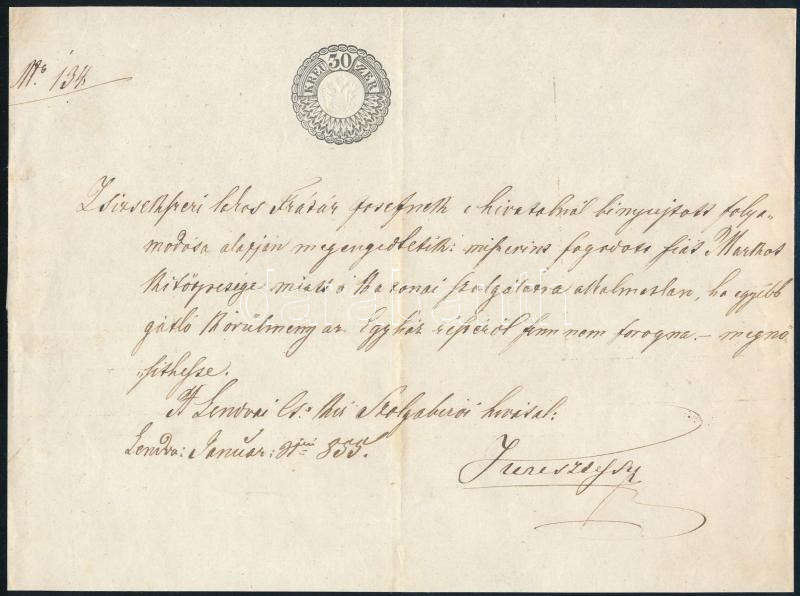 30
KREU ZER
No. 134.
Zsizsekszeri lakos Frátár Josefnek e hivatalnál bényujtott folya-
modása alapján megengedtetik: miszerint fogadott fiát Markot
Kitörpesége miatt a Katonai szolgálatra alkalmatlan, ha egyébb
gátló Körülmény az Egyház részéről fenn nem forogna – megnö-
sithesse.
A Lendvai Cs: Kir Szolgabirói hivatal:
Lendva: Januar: 855.
darabanth